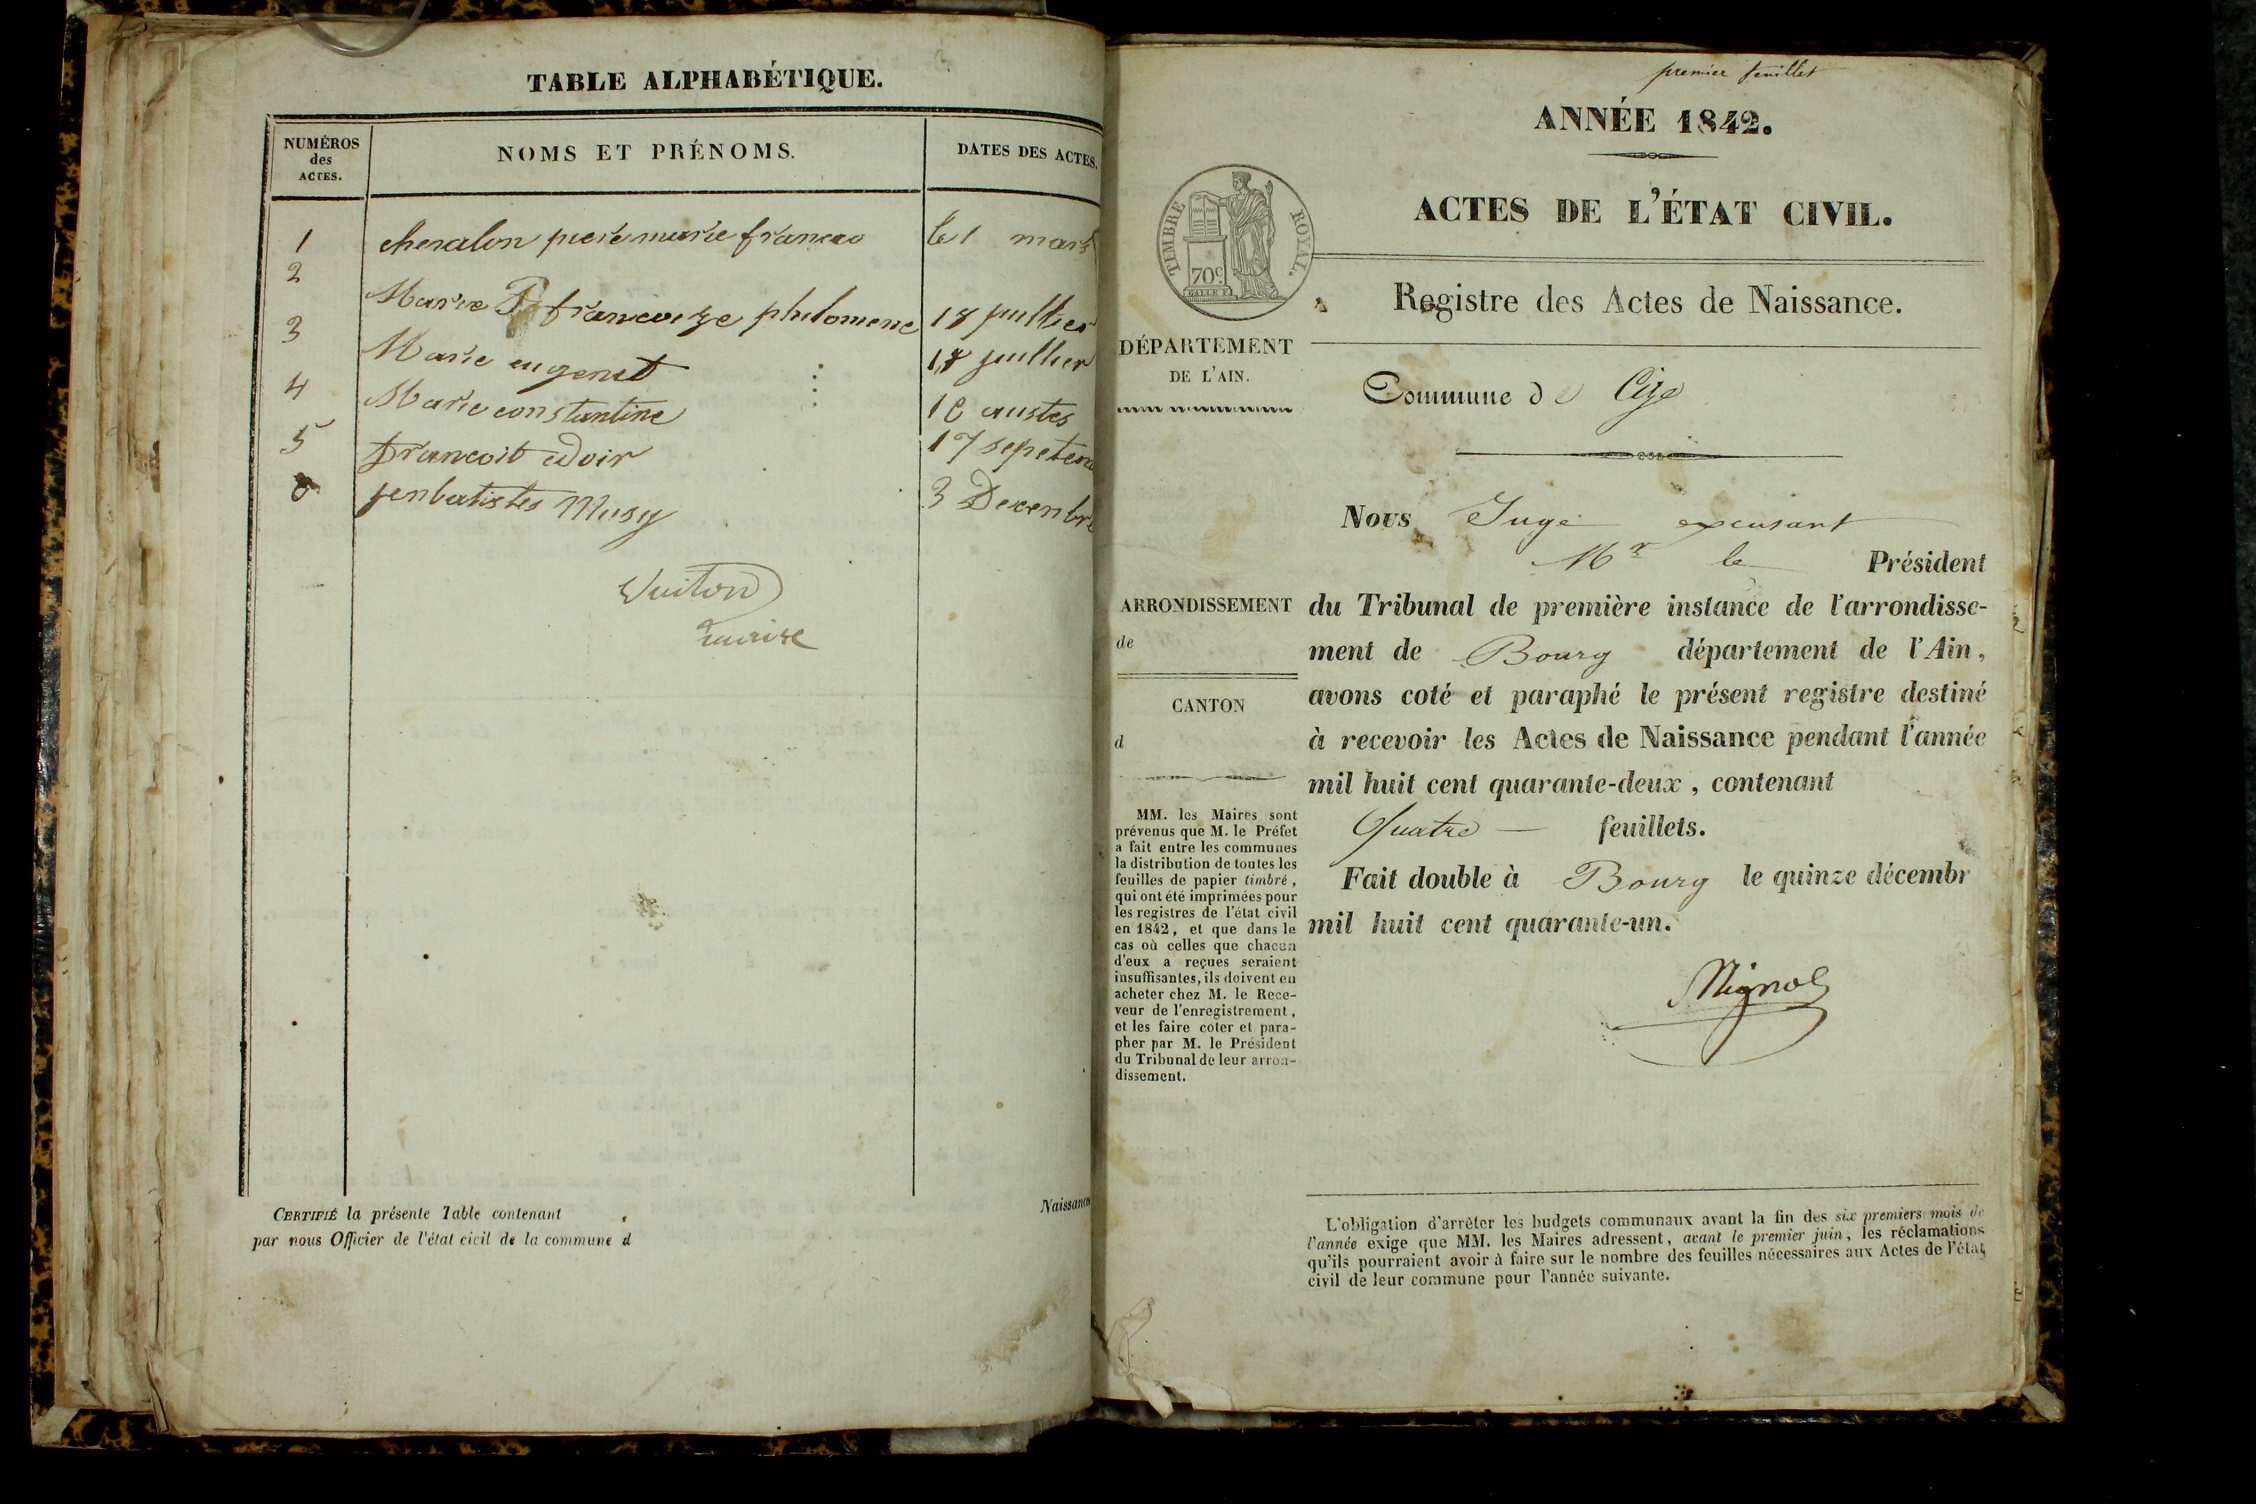 TABLE ALPHABÉTIQUE.
NUMÉROS
des
ACTES.
NOMS ET PRÉNOMS.
DATES DES ACTES.
1 chevalon piere marie francao le 1 mars
2 Marie F francoize philomene 18 juillier
3 Marie eugenet 18 juillier
4 Marie constantine 10 austes
5 francoit 17 septem
6 jenbatistes Musy 3 Decenbre
Vuiton
maire
CERTIFIÉ la présente Table contenant
Naissances
par nous Officier de l'état civil de la commune d
premier feuillet
ANNÉE 1842.
ACTES DE L'ÉTAT CIVIL.
TIMBRE ROYAL.
70c
Registre des Actes de Naissance.
DÉPARTEMENT
DE L'AIN.
Commune de Cize
Nous Juge excusant
Mr le Président
ARRONDISSEMENT
de
CANTON
d
du Tribunal de première instance de l'arrondisse-
ment de Bourg département de l'Ain,
avons coté et paraphé le présent registre destiné
à recevoir les Actes de Naissance pendant l'année
mil huit cent quarante-deux, contenant
Quatre — feuillets.
Fait double à Bourg le quinze décembr
mil huit cent quarante-un.
Mignol
MM. les Maires sont
prévenus que M. le Préfet
a fait entre les communes
la distribution de toutes les
feuilles de papier timbré,
qui ont été imprimées pour
les registres de l'état civil
en 1842, et que dans le
cas où celles que chacun
d'eux a reçues seraient
insuffisantes, ils doivent en
acheter chez M. le Rece-
veur de l'enregistrement,
et les faire coter et para-
pher par M. le Président
du Tribunal de leur arron-
dissement.
L'obligation d'arrêter les budgets communaux avant la fin des six premiers mois de
l'année exige que MM. les Maires adressent, avant le premier juin, les réclamations
qu'ils pourraient avoir à faire sur le nombre des feuilles nécessaires aux Actes de l'état
civil de leur commune pour l'année suivante.